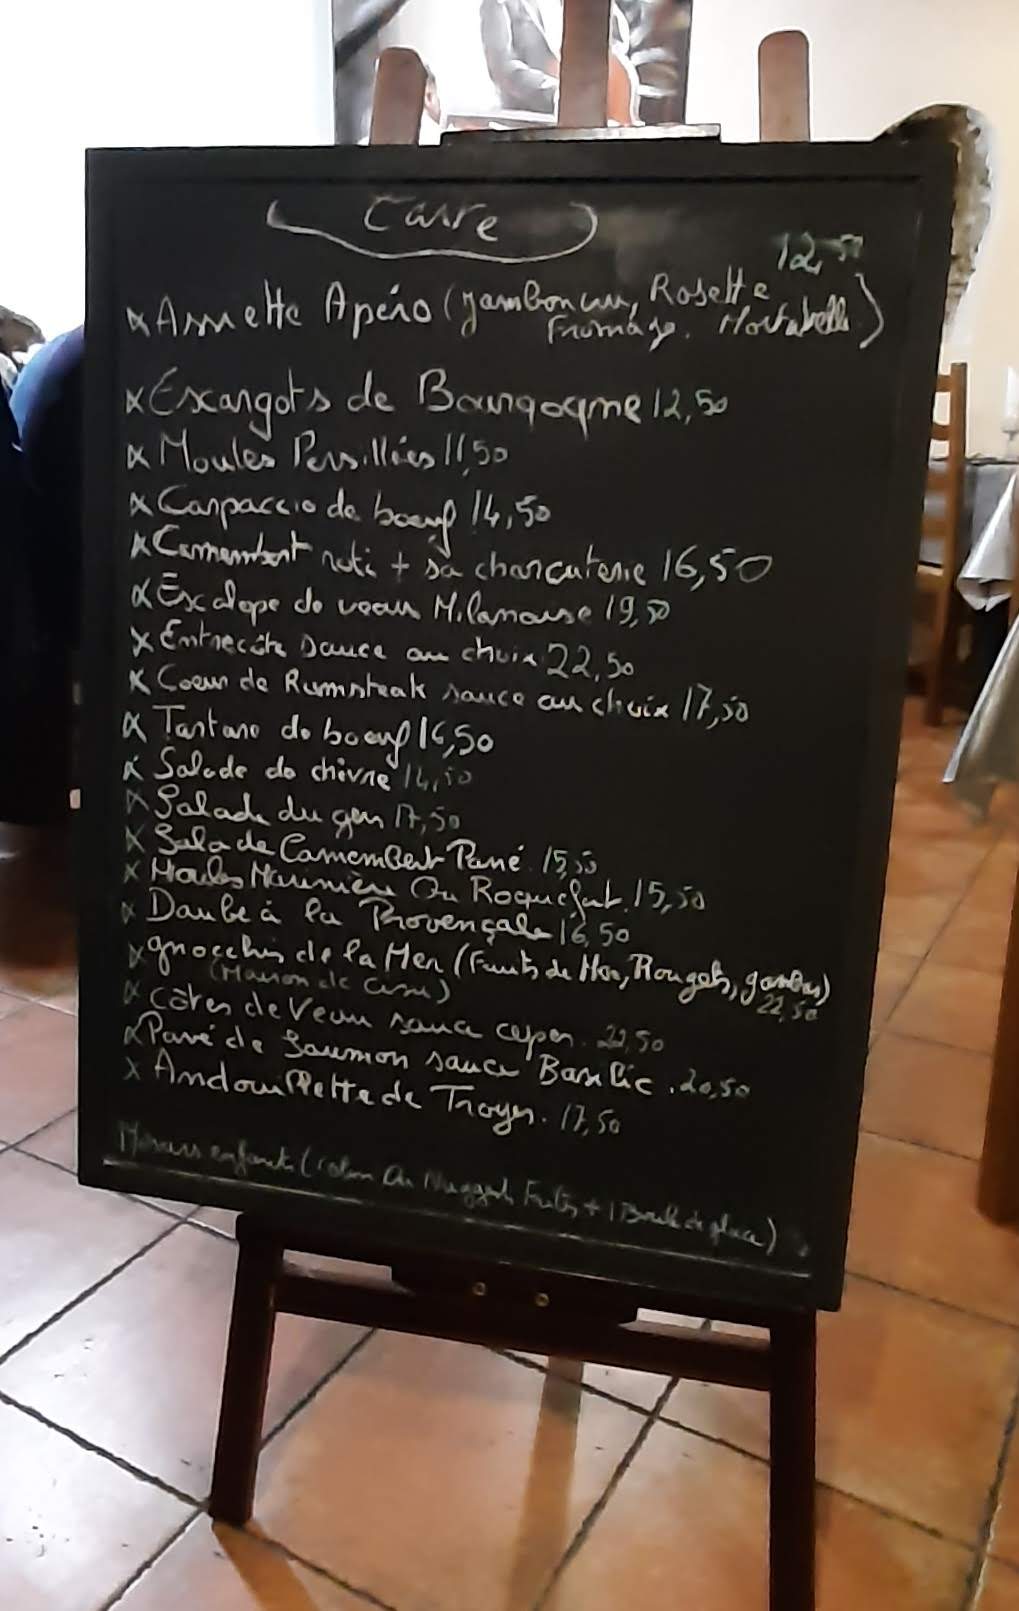 Carte
12,50
x Assiette Apéro (Jambonneau, Rosette
Fromage, Mortadelle)
x Escargots de Bourgogne 12,50
x Moules Persillées 11,50
x Carpaccio de boeuf 14,50
x Camembert roti + sa charcuterie 16,50
x Escalope de veau Milanaise 19,50
x Entrecôte sauce au choix 22,50
x Coeur de Rumsteak sauce au choix 17,50
x Tartare de boeuf 16,50
x Salade de chèvre 14,50
x Salade du gers 17,50
x Salade Camembert Pané 15,50
x Moules Marinière Ou Roquefort. 15,50
x Daube à la Provençale 16,50
x gnocchis de la Mer (Fruits de Mer, Rougets, gambas)
(Maison de ) 22,50
x Côtes de Veau sauce cepes. 22,50
x Pavé de Saumon sauce Basilic. 20,50
x Andouillette de Troyes. 17,50
enfants ( Ou Nuggets Frites + 1 Boule de glace)